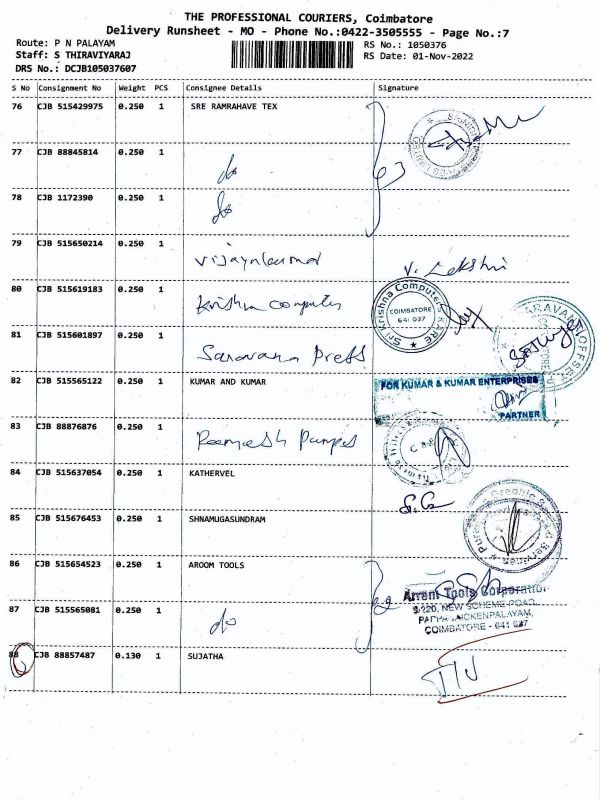 THE PROFESSIONAL COURIERS, Coimbatore
Delivery Runsheet - MO - Phone No.:0422-3505555 - Page No.:7
Route: P N PALAYAM
RS No.: 1050376
Staff: S THIRAVIYARAJ
RS Date: 01-Nov-2022
DRS No.: DCJB105037607
S No Consignment No Weight PCS Consignee Details Signature
76 CJB 515429975 0.250 1 SRE RAMRAHAVE TEX
77 CJB 88845814 0.250 1 do
78 CJB 1172390 0.250 1 do
79 CJB 515650214 0.250 1 Vijayakumar V. Lekshmi
80 CJB 515619183 0.250 1 Krishna Computer
Sri Krishna Computer KARE
COIMBATORE
641 037
81 CJB 515601897 0.250 1 Saravana Press
SARAVANA OFFSET
COIMBATORE
82 CJB 515565122 0.250 1 KUMAR AND KUMAR
FOR KUMAR & KUMAR ENTERPRISES
PARTNER
83 CJB 88876876 0.250 1 Ramesh Pumps
84 CJB 515637054 0.250 1 KATHERVEL
85 CJB 515676453 0.250 1 SHNAMUGASUNDRAM
86 CJB 515654523 0.250 1 AROOM TOOLS
Arram Tools Corporation
9/120, NEW SCHEME ROAD,
PAPPANAICKENPALAYAM,
COIMBATORE - 641 037
87 CJB 515565081 0.250 1 do
88 CJB 88857487 0.130 1 SUJATHA